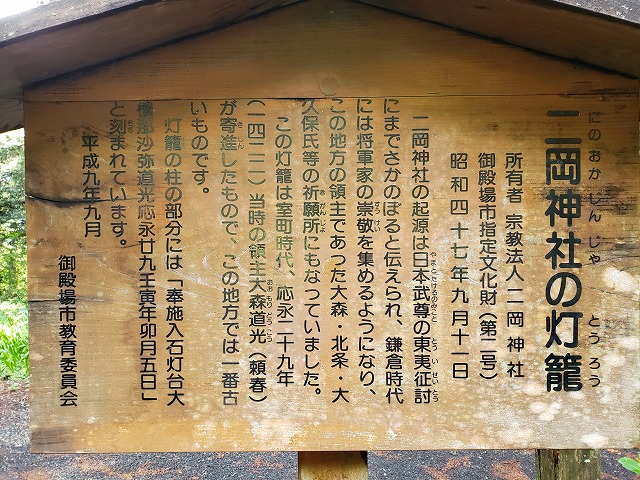 二岡神社の灯籠
にのおかじんじゃ とうろう
所有者 宗教法人二岡神社
御殿場市指定文化財（第二号）
昭和四十七年九月十一日
二岡神社の起源は日本武尊の東夷征討
にまでさかのぼると伝えられ、鎌倉時代
には将軍家の崇敬を集めるようになり、
この地方の領主であった大森・北条・大
久保氏等の祈願所にもなっていました。
この灯籠は室町時代、応永二十九年
（一四二二）当時の領主大森道光（頼春）
が寄進したもので、この地方では一番古
いものです。
灯籠の柱の部分には「奉施入石灯台大
檀那沙弥道光応永廿九壬寅年卯月五日」
と刻まれています。
平成九年九月
御殿場市教育委員会